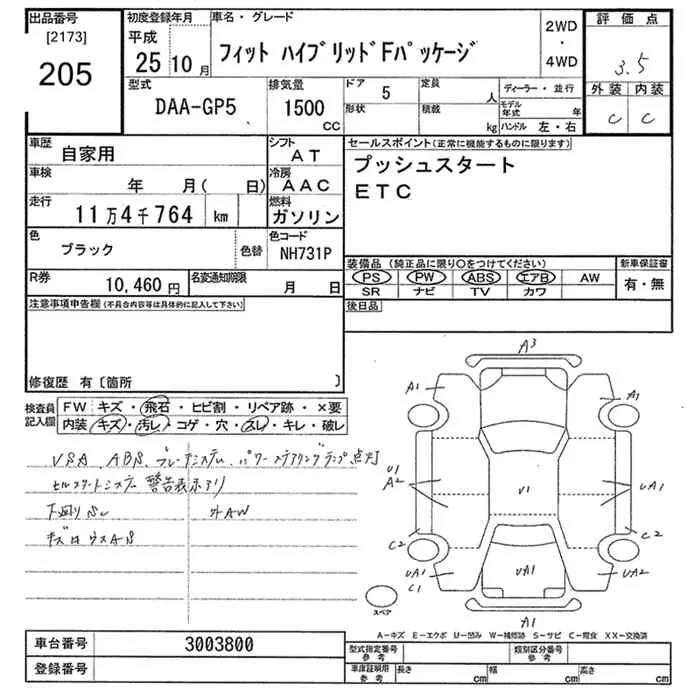 出品番号 初度登録年月 車名・グレード 評価点
[2173] 平成 2WD
205 25年10月 フィット ハイブリッドFパッケージ ・ 4WD 3.5
型式 排気量 ドア 5 定員 人 ディーラー・並行 外装 内装
DAA-GP5 1500 CC 形状 積載 kg モデル年式 年 C C
ハンドル 左・右
車歴 自家用 シフト AT セールスポイント(正常に機能するものに限ります)
車検 年 月( 日) 冷房 AAC プッシュスタート
走行 11万4千764 km 燃料 ガソリン ETC
色 ブラック 色替 色コード NH731P
装備品(純正品に限り〇をつけてください) 新車保証書
R券 10,460円 名変通知期限 月 日 PS PW ABS エアB AW 有・無
SR ナビ TV カワ
注意事項申告欄(不具合内容等は具体的に記入して下さい) 後日品
修復歴 有〔箇所 〕
検査員記入欄 FW キズ・飛石・ヒビ割・リペア跡・×要
内装 キズ・汚レ・コゲ・穴・スレ・キレ・破レ
VSA、ABS、ブレーキシステム、パワーステアリングランプ点灯
セルスタートシステム 警告表示アリ
下廻りSU 外AW
A3
A1 A1
U1 A2 U1 UA1
C2 C2
UA1 C1 UA1 UA2
A1
スペア
A-キズ E-エクボ U-凹み W-補修跡 S-サビ C-腐食 XX-交換済
車台番号 3003800 型式指定番号 参考 類別区分番号 参考
登録番号 車庫証明用 参考 長さ cm 幅 cm 高さ cm